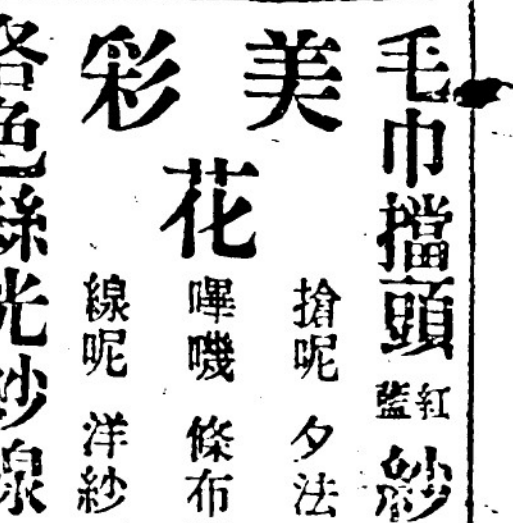 毛巾擋頭紅藍紗
美花彩
搶呢 夕法
嗶嘰 條布
線呢 洋紗
各色絲光紗線